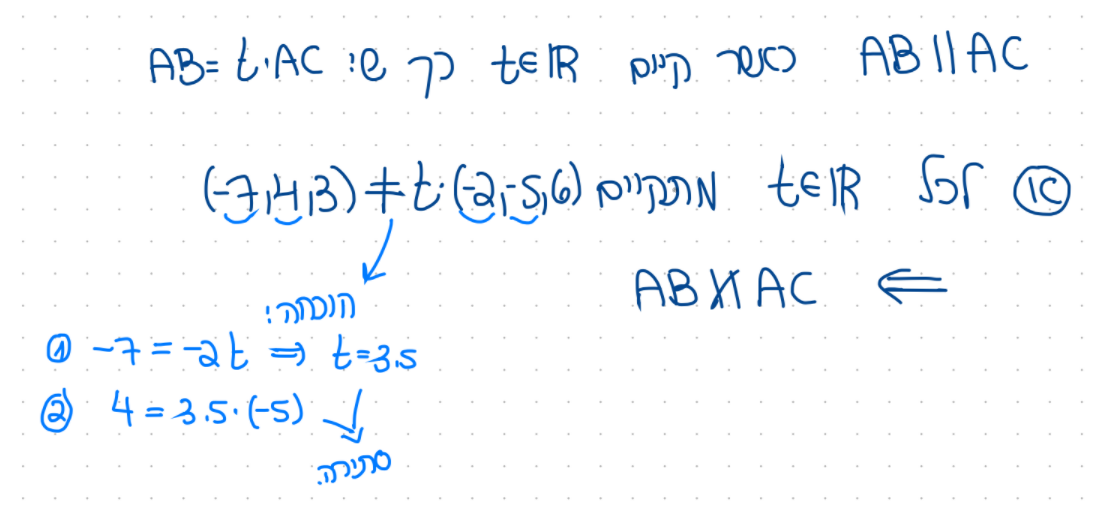 AB || AC כאשר קיים t∈ℝ כך ש: AB = t·AC
(א) לכל t∈ℝ מתקיים (-7,4,3) ≠ t·(-2,-5,6)
⇐ AB ∦ AC
הוכחה:
① -7 = -2t ⇒ t = 3.5
② 4 = 3.5·(-5)
סתירה.